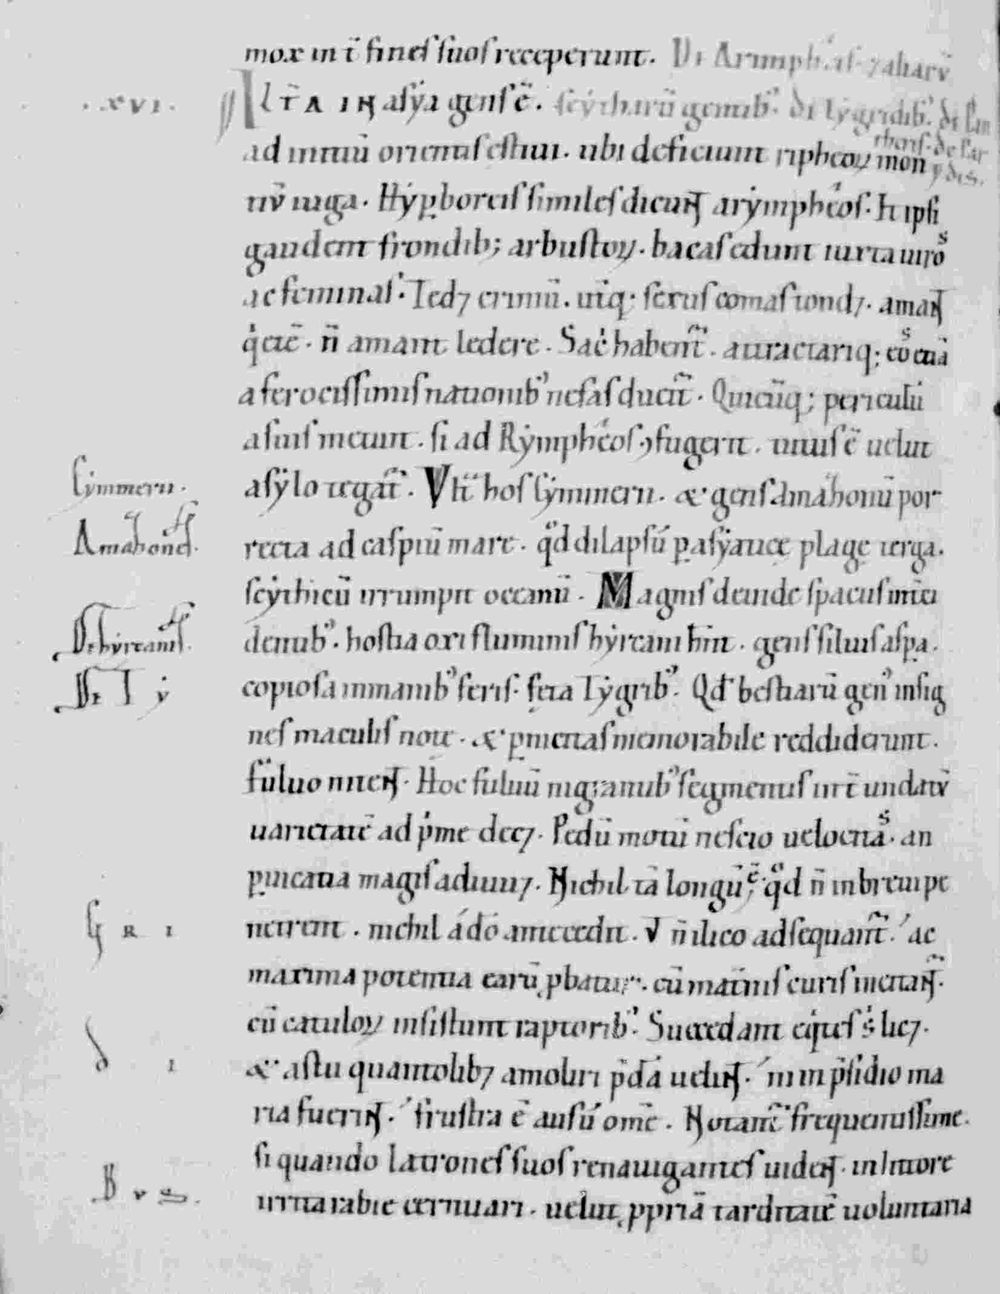 mox in t̄ fineſ ſuoſ receperunt. De Arimpheis. ⁊ aliarū
.XVI. Ultra in aſẏa genſ ē. ſcẏtharū gentib'. de tẏgridib'. de pan
theris. de par
ad initiū orientiſ eſtiui. ubi deficiunt ripheoꝝ mon
dis.
tiū iuga. Hẏꝑboreiſ ſimileſ dicunt arẏmpheoſ. hi ipſi
gaudent frondib; arbuſtoꝝ. bacaſ edunt iuxta uiros
ac feminaſ. Ted⁊ crinium. utiq; ſexuſ comaſ tond⁊. amant
q̇etē. n̄ amant ledere. Sac̄ habent̄. attractariq; eos etiā
a ferociſſimiſ nationib' nefaſ ducit̄. Quicūq; periculū
a ſuiſ metuit. ſi ad Rẏmpheoſ ꝯfugerit. tutuſ ē uelut
Cymmerii.
aſẏlo tegat̄. Vlt̄ hoſ Cẏmmerii. & genſ Amazonū por
Amazoneſ.
recta ad caſpiū mare. qd̄ dilapſū ꝑ aſẏaticę plagę terga.
ſcẏthicū irrumpit oceanū. Magniſ deinde ſpaciiſ inter
De hẏrcaniſ.
denub'. hoſtia oxi fluminiſ hẏrcani hn̄t. genſ ſiluiſ aſꝑa.
De Tẏ
copioſa inmanib' feriſ. feta Tẏgrib'. Qd̄ beſtiarū gen' inſig
neſ maculiſ note. & ꝑnicitaſ memorabile reddiderunt.
fuluo nitent. Hoc fuluū nigrantib' ſegmentiſ int̄ undatū
uarietatē ad p̄me dec⁊. Pedū motū neſcio uelocitas. an
ꝑnicatia magiſ adiuu⁊. Nichil tā longū ē. qd̄ n̄ in breui pe
GRI
netrent. nichil adeo antecedit. ⁊ n̄ ilico adſequant̄. ac
maxima potentia earū ꝓbatur. cū matniſ curiſ incitant̄.
cū catuloꝝ inſiſtunt raptorib'. Succedant eq̇teſ s̄ lic⁊.
DI
& aſtu quantolib⁊ amoliri p̄dā uelint. ni in p̄ſidio ma
ria fuerint. fruſtra ē auſū omē. Notant̄ frequentiſſime.
ſi quando latroneſ ſuoſ renauiganteſ uident. in littore
BUS.
irrita rabie cernuari. uelut ꝓpriā tarditatē uoluntaria